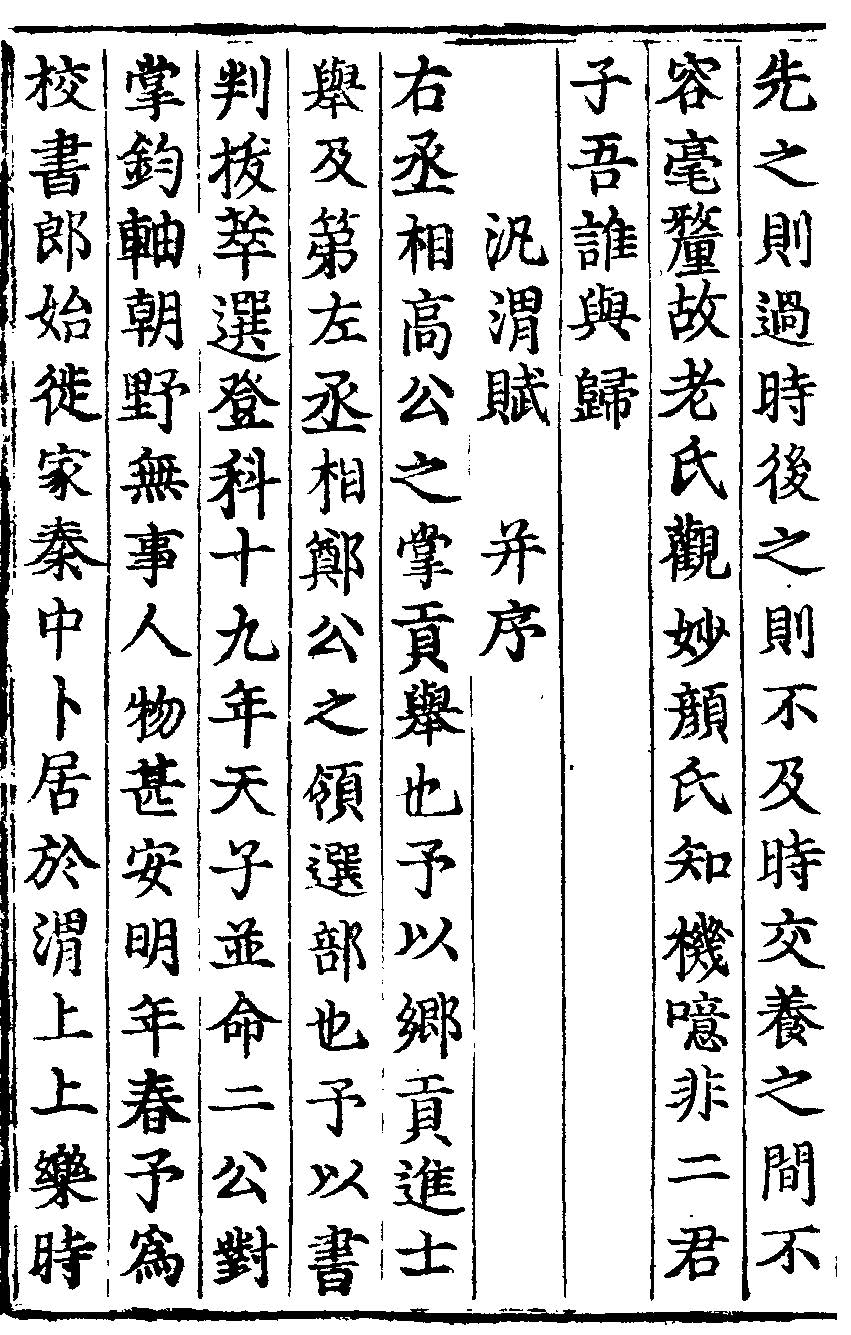 先之則過時後之則不及時交養之間不
容毫釐故老氏觀妙顏氏知機噫非二君
子吾誰與歸
汎渭賦　并序
右丞相高公之掌貢舉也予以鄉貢進士
舉及第左丞相鄭公之領選部也予以書
判拔萃選登科十九年天子並命二公對
掌鈞軸朝野無事人物甚安明年春予爲
校書郎始徙家秦中卜居於渭上上樂時